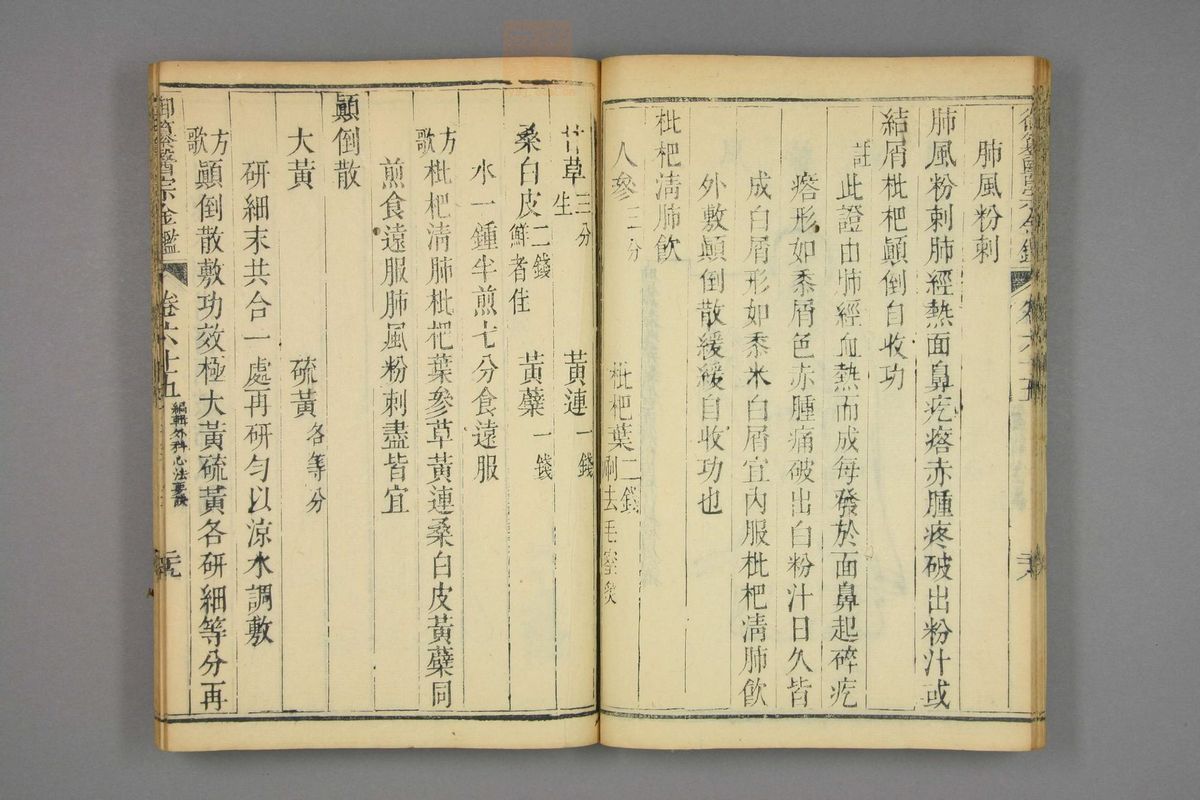 肺風粉刺
肺風粉刺肺經熱面鼻疙瘩赤腫疼破出粉汁或
結屑枇杷顚倒自收功
註此證由肺經血熱而成每發於面鼻起碎疙
瘩形如黍屑色赤腫痛破出白粉汁日久皆
成白屑形如黍米白屑宜内服枇杷淸肺飮
外敷顚倒散緩緩自收功也
枇杷淸肺飮
人參三分 枇杷葉二錢刷去毛蜜炙
甘草三分生 黃連一錢
桑白皮二錢鮮者佳 黃蘗一錢
水一鍾半煎七分食遠服
方歌枇杷淸肺枇杷葉參草黃連桑白皮黃蘗同
煎食遠服肺風粉刺盡皆宜
顚倒散
大黃 硫黃各等分
研細末共合一處再研勻以涼水調敷
方歌顚倒散敷功效極大黃硫黃各研細等分再
御纂醫宗金鑑 卷六十五 編輯外科心法要訣 元